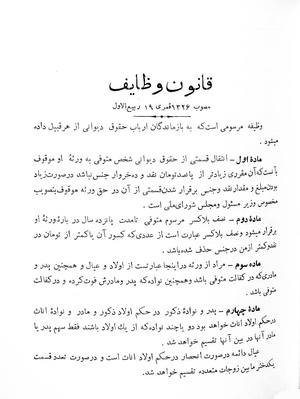 قانون وظایف
مصوب ۱۳۲۶ قمری ۱۹ ربیع‌الاول
وظیفه مرسومی است که به بازماندگان ارباب حقوق دیوانی از هر قبیل داده
میشود .
مادهٔ اول ـ انتقال قسمتی از حقوق دیوانی شخص متوفی به ورثهٔ او موقوف
با آنست که آن مقرری زیادتر از پانصد تومان نقد و ده خروار جنس نباشد در صورت زیاد
بودن مبلغ و مقدار نقد و جنس برقرار شدن قسمتی از آن در حق ورثه موقوف بتصویب
مخصوص وزیر مسئول و مجلس شورای ملی است .
مادهٔ دوم ـ نصف بلا کسر مرسوم متوفی تا مدت پانزده سال در بارهٔ ورثهٔ او
برقرار میشود و نصف بلا کسر عبارت است از عددی که کسور آن یا کمتر از تومان در
نقد و کمتر از من در جنس حذف شده باشد .
مادهٔ سوم ـ مراد از ورثه در اینجا عبارتست از اولاد و عیال و همچنین پدر و
مادری که در کفالت متوفی باشد و همچنین نواده که پدر و مادرش فوت کرده و در کفالت
متوفی باشد .
مادهٔ چهارم ـ پدر و نوادهٔ ذکور در حکم اولاد ذکور و مادر و نوادهٔ اناث
در حکم اولاد اناث خواهد بود دو یا چند نواده که از یک اولاد باشند فقط سهم پدر یا
مادر آنها در بین آنها تقسیم خواهد شد .
عیال دائمه در صورت انحصار در حکم اولاد اناث است و در صورت تعدد قسمت
یکدختر ما بین زوجات متعدده تقسیم خواهد شد .